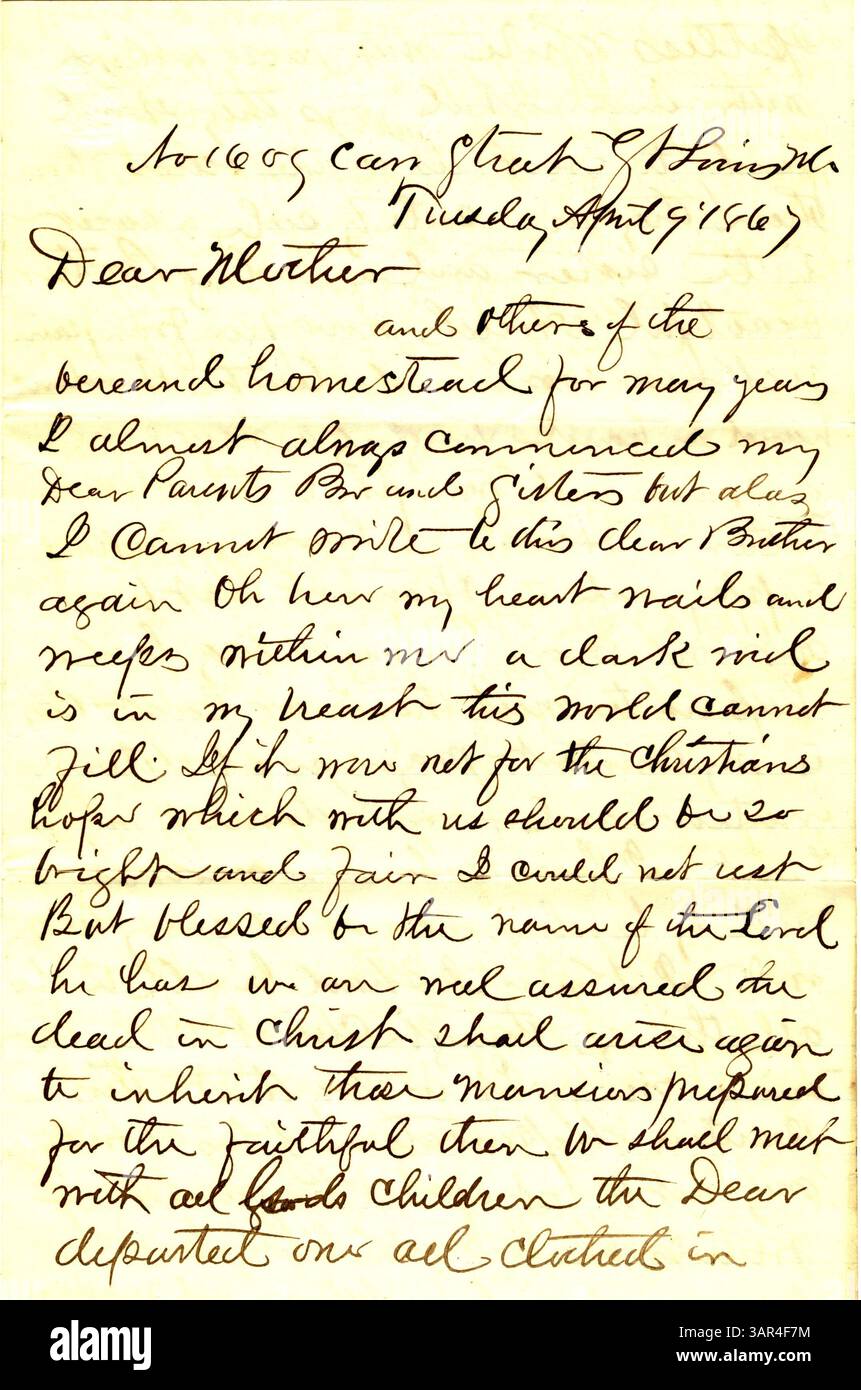 No 1609 Carr Street St Louis Mo
Tuesday April 9 1867
Dear Mother
and others of the
bereand homestead for many years
I almost always commenced my
Dear Parents Bro and Sisters but alas
I cannot write to this dear Brother
again Oh how my heart wails and
weeps within me a dark void
is in my breast this world cannot
fill. If it were not for the Christians
hope which with us should be so
bright and fair I could not rest
But blessed be the name of the Lord
he has we are well assured the
dead in Christ shall arise again
to inherit those mansions prepared
for the faithful then we shall meet
with all Gods children the Dear
departed one all clothed in
alamy
Image ID: 3AR4F7M
www.alamy.com